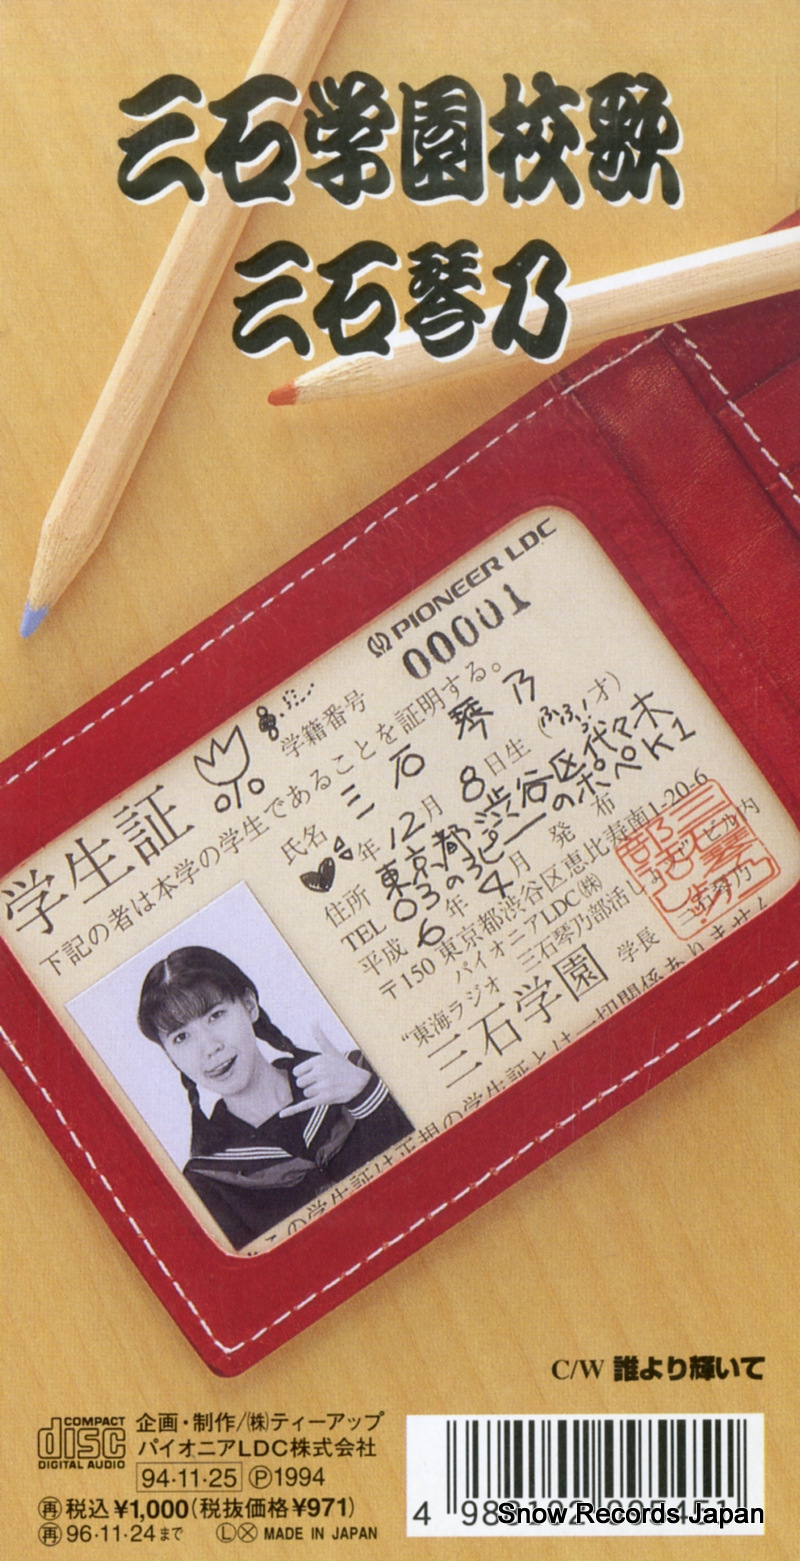 三石学園校歌
三石琴乃
PIONEER LDC
00001
学生証
学籍番号
下記の者は本学の学生であることを証明する。
氏名 三石琴乃
年12月8日生(ふふ!才)
住所 東京都渋谷区代々木
TEL 03の3ピーのポペK1
平成6年4月発布
〒150 東京都渋谷区恵比寿南1-20-6
パイオニアLDC㈱
"東海ラジオ 三石琴乃部活し
ビル内
三石学園 学長 三石琴乃
三石琴乃部活しよっ!
C/W 誰より輝いて
COMPACT
disc
DIGITAL AUDIO
企画・制作/㈱ティーアップ
パイオニアLDC株式会社
94·11·25 Ⓟ1994
再 税込¥1,000(税抜価格¥971)
再 96·11·24まで Ⓛ Ⓧ MADE IN JAPAN
Snow Records Japan